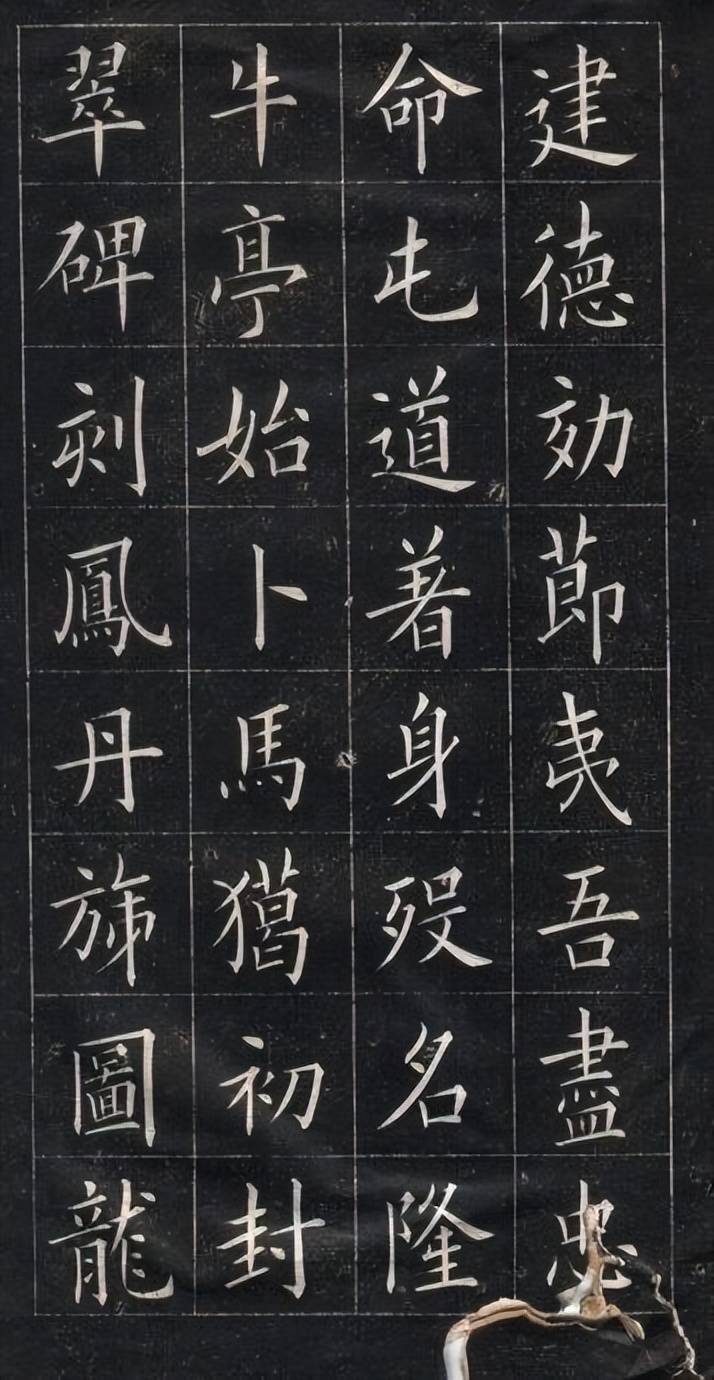 建德効莭夷吾盡忠
命屯道著身歿名隆
牛亭始卜馬獦初封
翠碑刻鳳丹旆圖龍